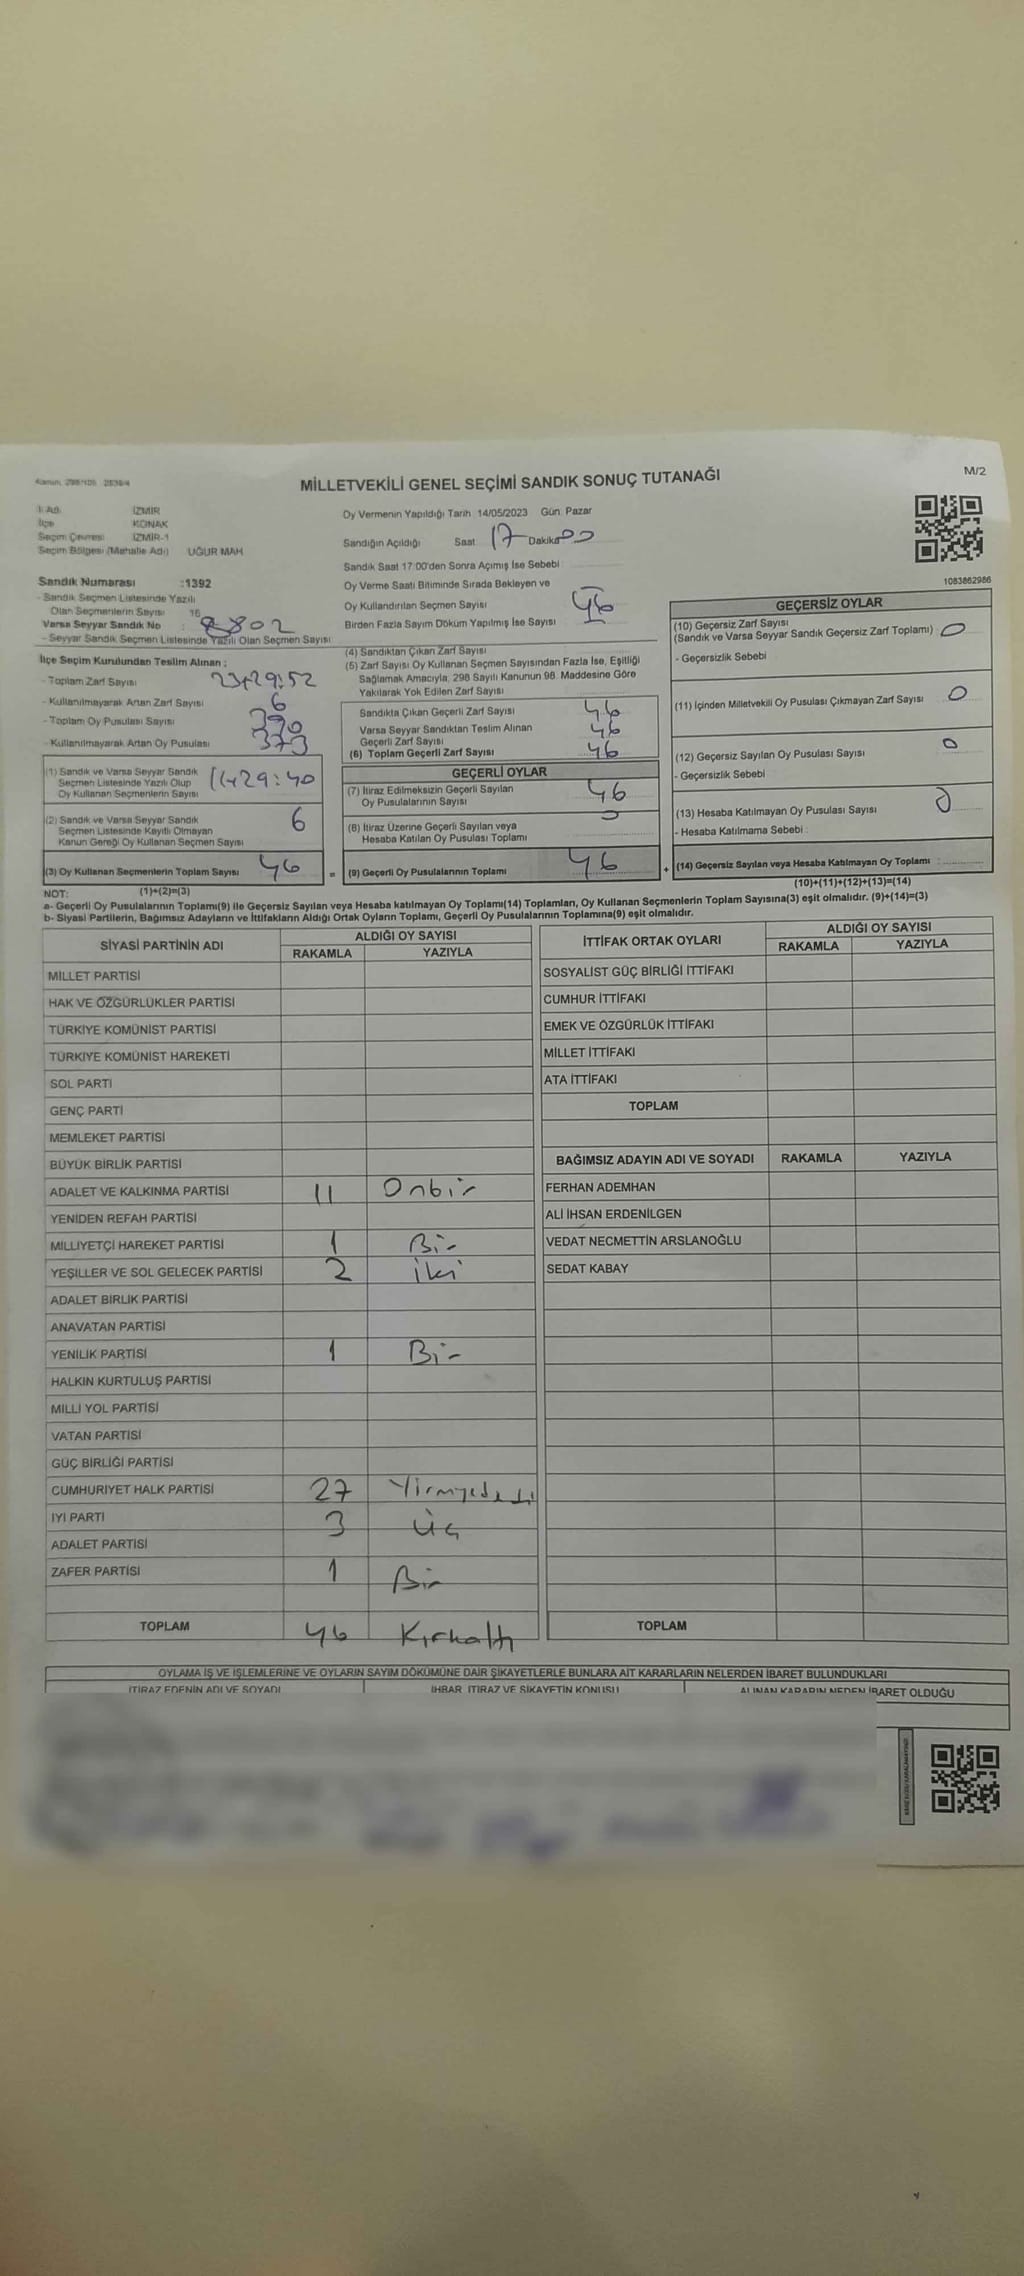 MİLLETVEKİLİ GENEL SEÇİMİ SANDIK SONUÇ TUTANAĞI
M/2
İl Adı İZMİR
İlçe KONAK
Seçim Çevresi İZMİR-1
Seçim Bölgesi (Mahalle Adı) UĞUR MAH.
Sandık Numarası :1392
- Sandık Seçmen Listesinde Yazılı
Olan Seçmenlerin Sayısı 16
Varsa Seyyar Sandık No : 8802
- Seyyar Sandık Seçmen Listesinde Yazılı Olan Seçmen Sayısı
İlçe Seçim Kurulundan Teslim Alınan :
- Toplam Zarf Sayısı 23+29:52
- Kullanılmayarak Artan Zarf Sayısı 6
- Toplam Oy Pusulası Sayısı 390
- Kullanılmayarak Artan Oy Pusulası 373
(1) Sandık ve Varsa Seyyar Sandık
Seçmen Listesinde Yazılı Olup
Oy Kullanan Seçmenlerin Sayısı 11+29:40
(2) Sandık ve Varsa Seyyar Sandık
Seçmen Listesinde Kayıtlı Olmayan
Kanun Gereği Oy Kullanan Seçmen Sayısı 6
(3) Oy Kullanan Seçmenlerin Toplam Sayısı 46
Oy Vermenin Yapıldığı Tarih 14/05/2023 Gün Pazar
Sandığın Açıldığı Saat 17 Dakika 00
Sandık Saat 17:00'den Sonra Açımış İse Sebebi
Oy Verme Saati Bitiminde Sırada Bekleyen ve
Oy Kullandırılan Seçmen Sayısı 46
Birden Fazla Sayım Döküm Yapılmış İse Sayısı
(4) Sandıktan Çıkan Zarf Sayısı
(5) Zarf Sayısı Oy Kullanan Seçmen Sayısından Fazla İse, Eşitliği
Sağlamak Amacıyla, 298 Sayılı Kanunun 98. Maddesine Göre
Yakılarak Yok Edilen Zarf Sayısı
Sandıkta Çıkan Geçerli Zarf Sayısı 46
Varsa Seyyar Sandıktan Teslim Alınan
Geçerli Zarf Sayısı 46
(6) Toplam Geçerli Zarf Sayısı 46
GEÇERLİ OYLAR
(7) İtiraz Edilmeksizin Geçerli Sayılan
Oy Pusulalarının Sayısı 46
(8) İtiraz Üzerine Geçerli Sayılan veya
Hesaba Katılan Oy Pusulası Toplamı
= (9) Geçerli Oy Pusulalarının Toplamı 46
1083862986
GEÇERSİZ OYLAR
(10) Geçersiz Zarf Sayısı
(Sandık ve Varsa Seyyar Sandık Geçersiz Zarf Toplamı) 0
- Geçersizlik Sebebi
(11) İçinden Milletvekili Oy Pusulası Çıkmayan Zarf Sayısı 0
(12) Geçersiz Sayılan Oy Pusulası Sayısı 0
- Geçersizlik Sebebi
(13) Hesaba Katılmayan Oy Pusulası Sayısı 0
- Hesaba Katılmama Sebebi :
+ (14) Geçersiz Sayılan veya Hesaba Katılmayan Oy Toplamı :
NOT: (1)+(2)=(3) (10)+(11)+(12)+(13)=(14)
a- Geçerli Oy Pusulalarının Toplamı(9) ile Geçersiz Sayılan veya Hesaba katılmayan Oy Toplamı(14) Toplamları, Oy Kullanan Seçmenlerin Toplam Sayısına(3) eşit olmalıdır. (9)+(14)=(3)
b- Siyasi Partilerin, Bağımsız Adayların ve İttifakların Aldığı Ortak Oyların Toplamı, Geçerli Oy Pusulalarının Toplamına(9) eşit olmalıdır.
SİYASİ PARTİNİN ADI ALDIĞI OY SAYISI
RAKAMLA YAZIYLA
MİLLET PARTİSİ
HAK VE ÖZGÜRLÜKLER PARTİSİ
TÜRKİYE KOMÜNİST PARTİSİ
TÜRKİYE KOMÜNİST HAREKETİ
SOL PARTİ
GENÇ PARTİ
MEMLEKET PARTİSİ
BÜYÜK BİRLİK PARTİSİ
ADALET VE KALKINMA PARTİSİ 11 Onbir
YENİDEN REFAH PARTİSİ
MİLLİYETÇİ HAREKET PARTİSİ 1 Bir
YEŞİLLER VE SOL GELECEK PARTİSİ 2 iki
ADALET BİRLİK PARTİSİ
ANAVATAN PARTİSİ
YENİLİK PARTİSİ 1 Bir
HALKIN KURTULUŞ PARTİSİ
MİLLİ YOL PARTİSİ
VATAN PARTİSİ
GÜÇ BİRLİĞİ PARTİSİ
CUMHURİYET HALK PARTİSİ 27 Yirmiyedi
İYİ PARTİ 3 üç
ADALET PARTİSİ
ZAFER PARTİSİ 1 Bir
TOPLAM 46 Kırkaltı
İTTİFAK ORTAK OYLARI ALDIĞI OY SAYISI
RAKAMLA YAZIYLA
SOSYALİST GÜÇ BİRLİĞİ İTTİFAKI
CUMHUR İTTİFAKI
EMEK VE ÖZGÜRLÜK İTTİFAKI
MİLLET İTTİFAKI
ATA İTTİFAKI
TOPLAM
BAĞIMSIZ ADAYIN ADI VE SOYADI RAKAMLA YAZIYLA
FERHAN ADEMHAN
ALİ İHSAN ERDENİLGEN
VEDAT NECMETTİN ARSLANOĞLU
SEDAT KABAY
TOPLAM
OYLAMA İŞ VE İŞLEMLERİNE VE OYLARIN SAYIM DÖKÜMÜNE DAİR ŞİKAYETLERLE BUNLARA AİT KARARLARIN NELERDEN İBARET BULUNDUKLARI
İTİRAZ EDENİN ADI VE SOYADI İHBAR, İTİRAZ VE ŞİKAYETİN KONUSU ALINAN KARARIN NEDEN İBARET OLDUĞU